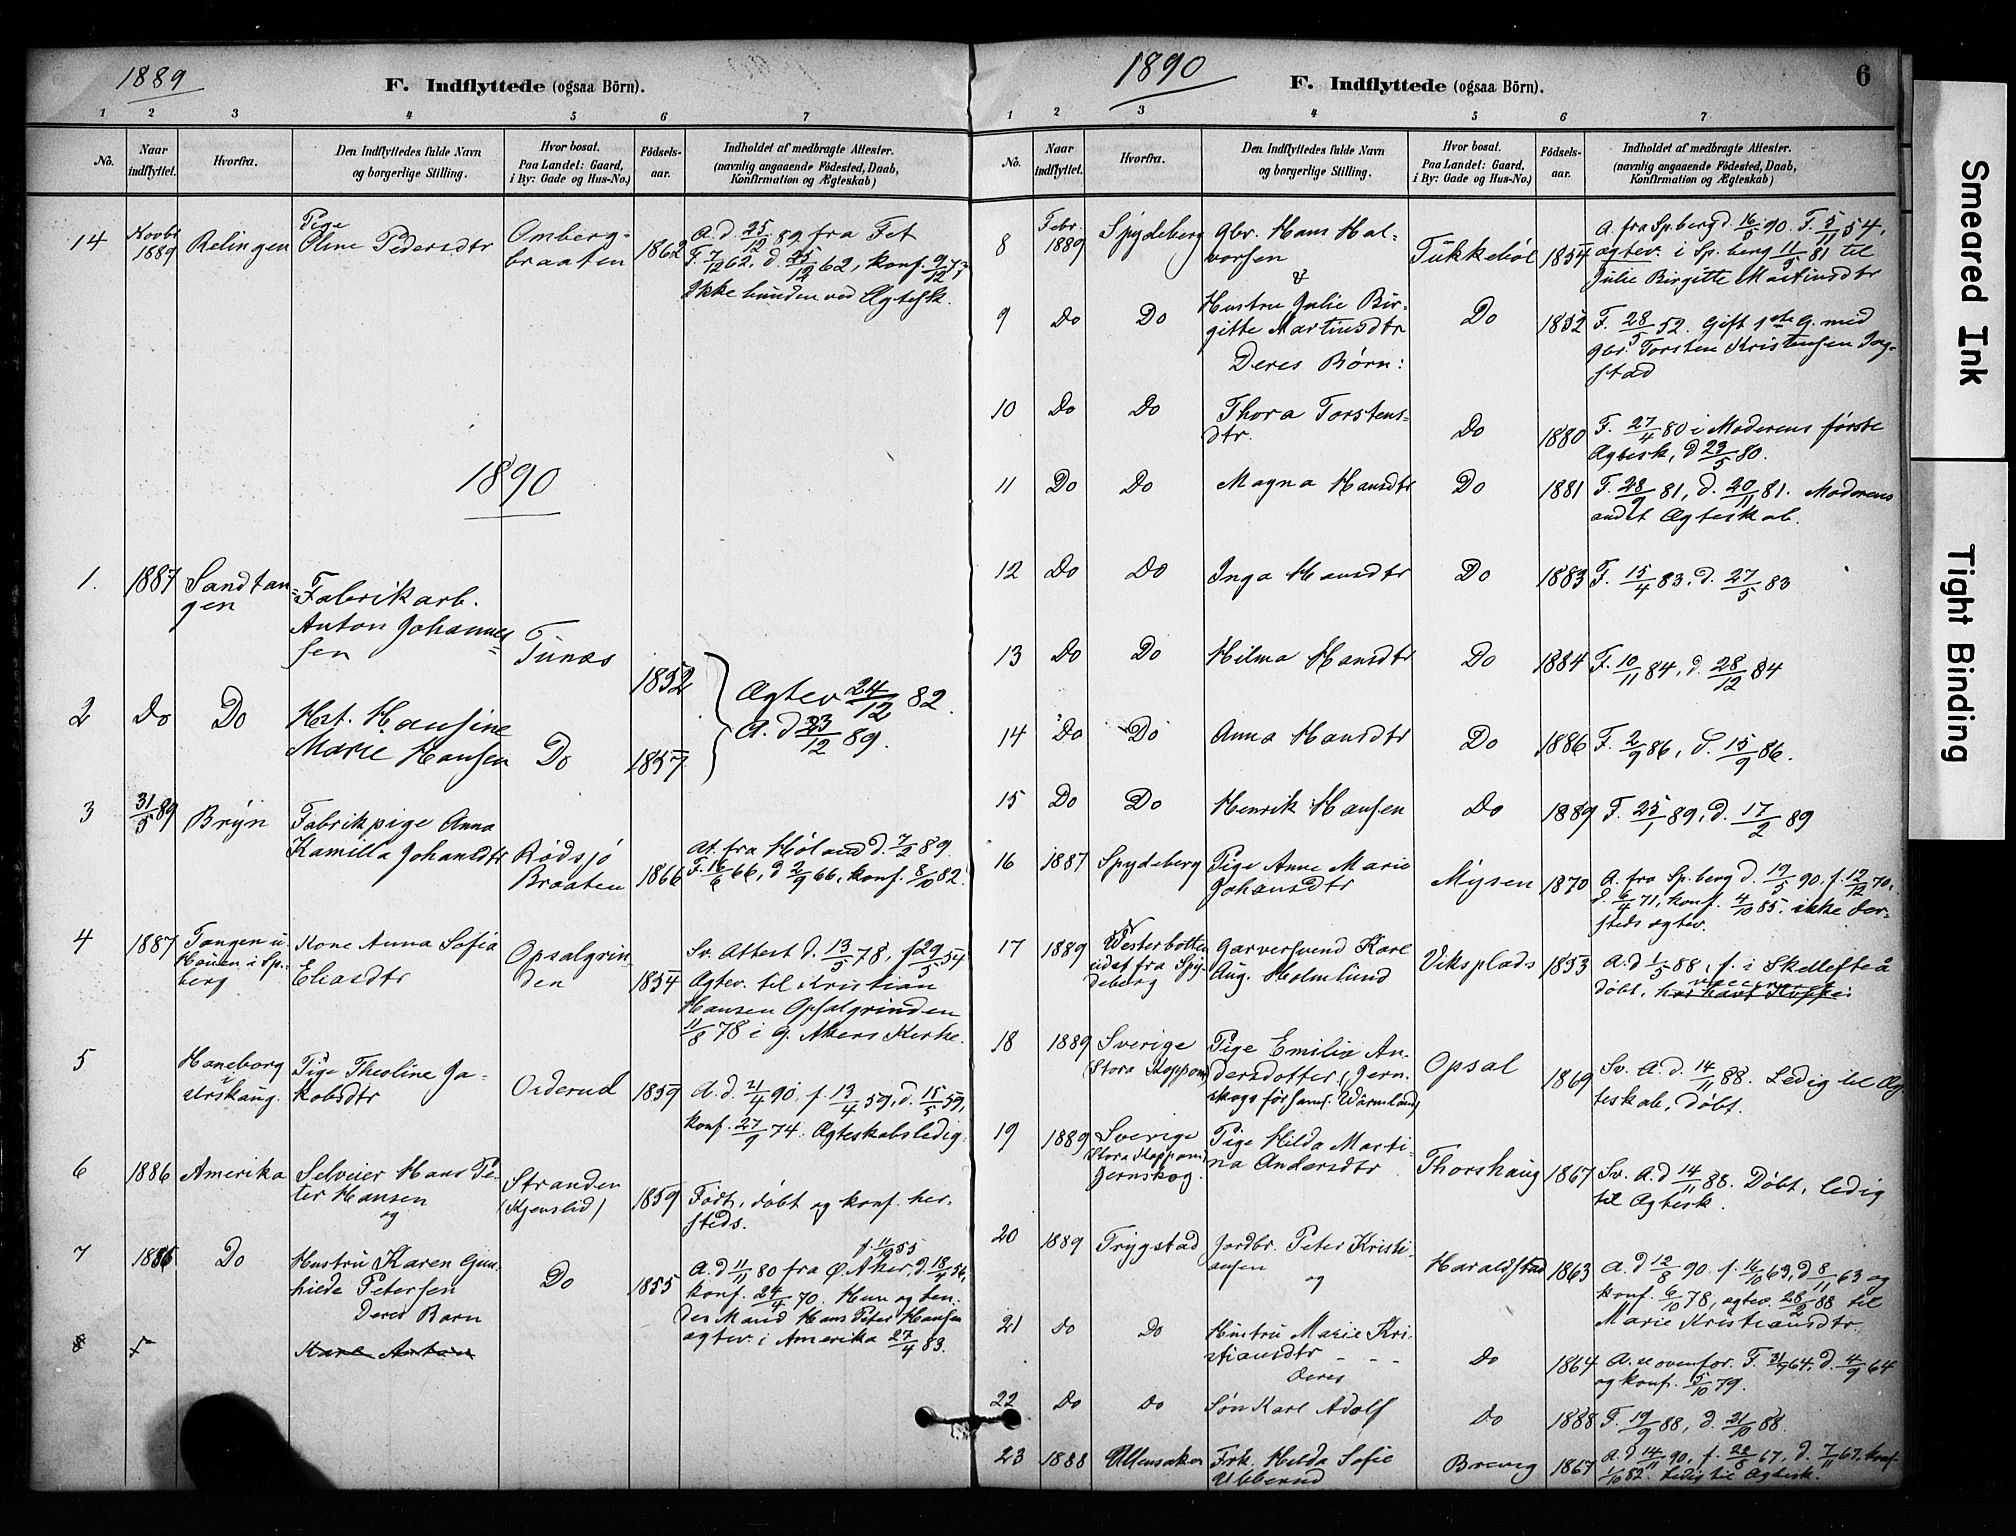 1889
F. Indflyttede (ogsaa Börn).
1 2 3 4 5 6 7
No.
Naar indflyttet.
Hvorfra.
Den Indflyttedes fulde Navn og borgerlige Stilling.
Hvor bosat. Paa Landet: Gaard, i By: Gade og Hus-No.)
Fødsels-aar.
Indholdet af medbragte Attester. (navnlig angaaende Fødested, Daab, Konfirmation og Ægteskab)
14 Novbr 1889 Relingen Pige Oline Pedersdtr Omberg-braaten 1862
A. d. 25/12 89 fra Fet
F. 7/12 62, d. 25/12 62, konf.
Ikke bunden ved Ægtesk.
1890
1. 1887 Sandtan-gen Fabrikarb. Anton Johannes-sen Tunæs 1852
Ægtev 24/12 82.
A. d 23/12 89.
2 Do Do Hst. Hansine Marie Hansen Do 1857
3 31/5 89 Bryn Fabrikpige Anna Kamilla Johansdtr Rødsjø Braaten 1866
At. fra Høland d. 7/2 89.
F. 16/6 66, d 2/9 66, konf. 8/10 82.
4 1887 Tangen i Sp.-berg Kone Anna Sofia Eliasdtr Opsalgrin-den 1854
Sv. Attest d. 13/5 78, f 29/5 54
Ægtev. til Kristian
Hansen Opsalgrinden
11/8 78 i G. Akers Kirke.
5 Haneborg i Urskaug. Pige Theoline Ja-kobsdtr Orderud 1859
A. d. 21/4 90. f. 13/4 59, d. 15/5 59,
konf. 27/9 74. Ægteskabsledig.
6 1886 Amerika Selveier Hans Pe-ter Hansen og Stranden (Kjenslid) 1859
Født, døbt og konf. her-
steds.
7 1886 Do Hustru Karen Gun-hilde Petersen Do 1855
Deres Barn
f. 11/9 55
A. d 11/11 80 fra Ø. Aker, d. 18/4 56,
konf. 24/4 70. Hun og hen-
des Mand Hans Peter Hansen
ægtev. i Amerika 27/4 83.
8 Karl Anton
1890
F. Indflyttede (ogsaa Börn).
6
1 2 3 4 5 6 7
No.
Naar indflyttet.
Hvorfra.
Den Indflyttedes fulde Navn og borgerlige Stilling.
Hvor bosat. Paa Landet: Gaard, i By: Gade og Hus-No.)
Fødsels-aar.
Indholdet af medbragte Attester. (navnlig angaaende Fødested, Daab, Konfirmation og Ægteskab)
8 Febr. 1889 Spydeberg Gbr. Hans Hal-vorsen & Tukkebøl 1854
A. fra Sp.berg d. 16/5 90. F. 5/11 54,
ægtev. i Sp.berg 11/5 81 til
Julie Birgitte Martinsdtr
9 Do Do Hustru Julie Bir-gitte Martinsdtr Do 1852
F. 28/5 52. Gift 1ste G. med
Gbr. Torsten Kristensen
Deres Børn:
10 Do Do Thora Torstens-dtr. Do 1880
F. 27/4 80 i Moderens første
Ægtesk, d 23/5 80.
11 Do Do Magna Hansdtr Do 1881
F. 28/9 81, d. 20/11 81. Moderens
andet Ægteskab.
12 Do Do Inga Hansdtr Do 1883 F. 15/4 83, d. 27/5 83
13 Do Do Hilma Hansdtr Do 1884 F. 10/11 84, d. 28/12 84
14 Do Do Anna Hansdtr Do 1886 F. 2/9 86, d. 15/9 86.
15 Do Do Henrik Hansen Do 1889 F. 25/1 89, d. 17/2 89
16 1887 Spydeberg Pige Anne Marie Johansdtr Mysen 1870
A. fra Sp.berg d. 19/5 90. f. 12/12 70,
d. 6/4 71, konf. 4/10 85, ikke der-
steds ægtev.
17 1889 Westerbotten sidst fra Spy-deberg Garversvend Karl Aug. Holmlund Viksplads 1853
A. d 1/5 88, f. i Skellefteå
døbt, vaccineret
har havt Kopper
18 1889 Sverige (Stora Koppom) Pige Emilia An-dersdotter (Jern-skogs församl. Wärmland) Opsal 1869
Sv. A. d. 14/11 88. Ledig til Æg-
teskab, døbt.
19 1889 Sverige (Stora Koppom) Jernskog. Pige Hilda Marti-na Andersdtr Thorshaug 1867
Sv. A. d 14/11 88. Døbt, ledig
til Ægtesk.
20 1889 Trygstad Jordbr. Peter Kristi-ansen og Haraldstad 1863
A. d 12/8 90. f. 16/10 63, d 8/11 63 og
konf. 6/10 78, ægtev. 28/2 88 til
Marie Kristiansdtr.
21 Do Do Hustru Marie Kri-stiansdtr - - - Do 1864
A. se ovenfor. F. 31/7 64, d. 4/9 64
og konf. 5/10 79.
Deres
22 Do Do Søn Karl Adolf Do 1888 F. 19/9 88, d. 21/10 88.
23 1888 Ullensaker Frk. Hilda Sofie Ubberud Brevig 1867
A. d 14/11 90, f. 28/8 67, d. 7/11 67, konf.
1/10 82. Ledig til Ægtesk.
Smeared Ink
Tight Binding